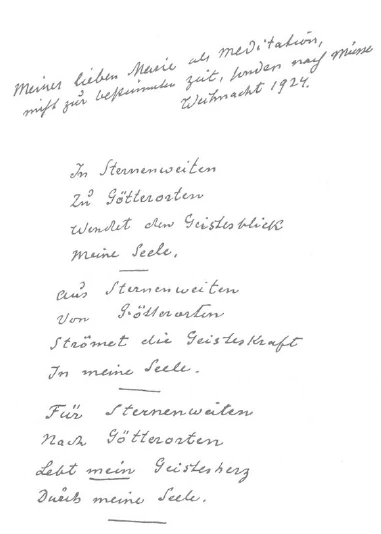 Meiner lieben Marie als Meditation,
nicht zur bestimmten Zeit, sonden nach Müsse
Weihnacht 1924.
In Sternenweiten
Zu Götterorten
Wendet den Geistesblick
Meine Seele.
Aus Sternenweiten
Von Götterorten
Strömet die Geisteskraft
In meine Seele.
Für Sternenweiten
Nach Götterorten
Lebt mein Geistesherz
Durch meine Seele.